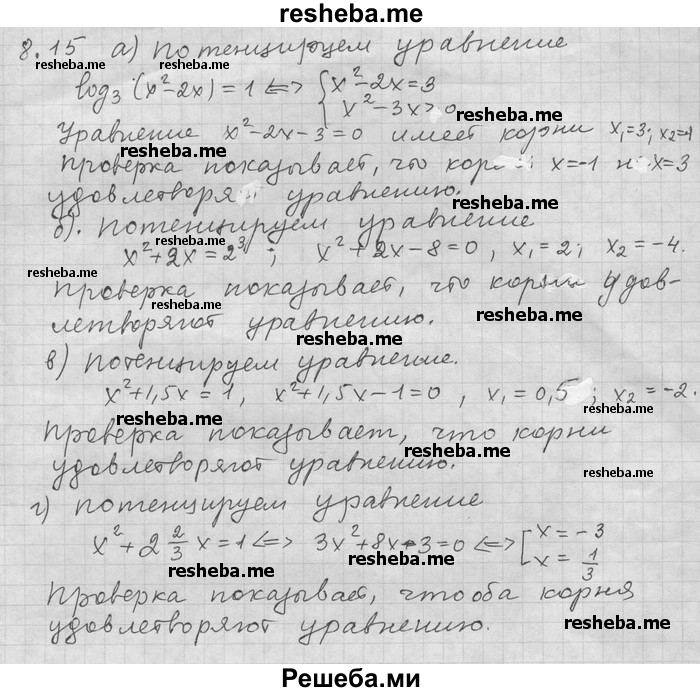 resheba.me
8.15 а) потенцируем уравнение
resheba.me resheba.me
log₃ (x²-2x) = 1 <=> { x²-2x=3
x²-3x>0
resheba.me
Уравнение x²-2x-3=0 имеет корни x₁=3; x₂=-1
resheba.me
проверка показывает, что x=-1 и x=3
удовлетворя уравнению. resheba.me
б). потенцируем уравнение
resheba.me
x²+2x=2³; x²+2x-8=0, x₁=2; x₂=-4.
resheba.me
Проверка показывает, что корни удов-
resheba.me
летворяют уравнению. resheba.me
в) потенцируем уравнение.
x²+1,5x=1, x²+1,5x-1=0, x₁=0,5; x₂=-2.
resheba.me resheba.me
Проверка показывает, что корни
удовлетворяют уравнению. resheba.me
г) потенцируем уравнение
x²+2 2/3 x=1 <=> 3x²+8x-3=0 <=> [ x=-3
x=1/3
resheba.me resheba.me
Проверка показывает, что оба корня
удовлетворяют уравнению. resheba.me
Решеба.ми